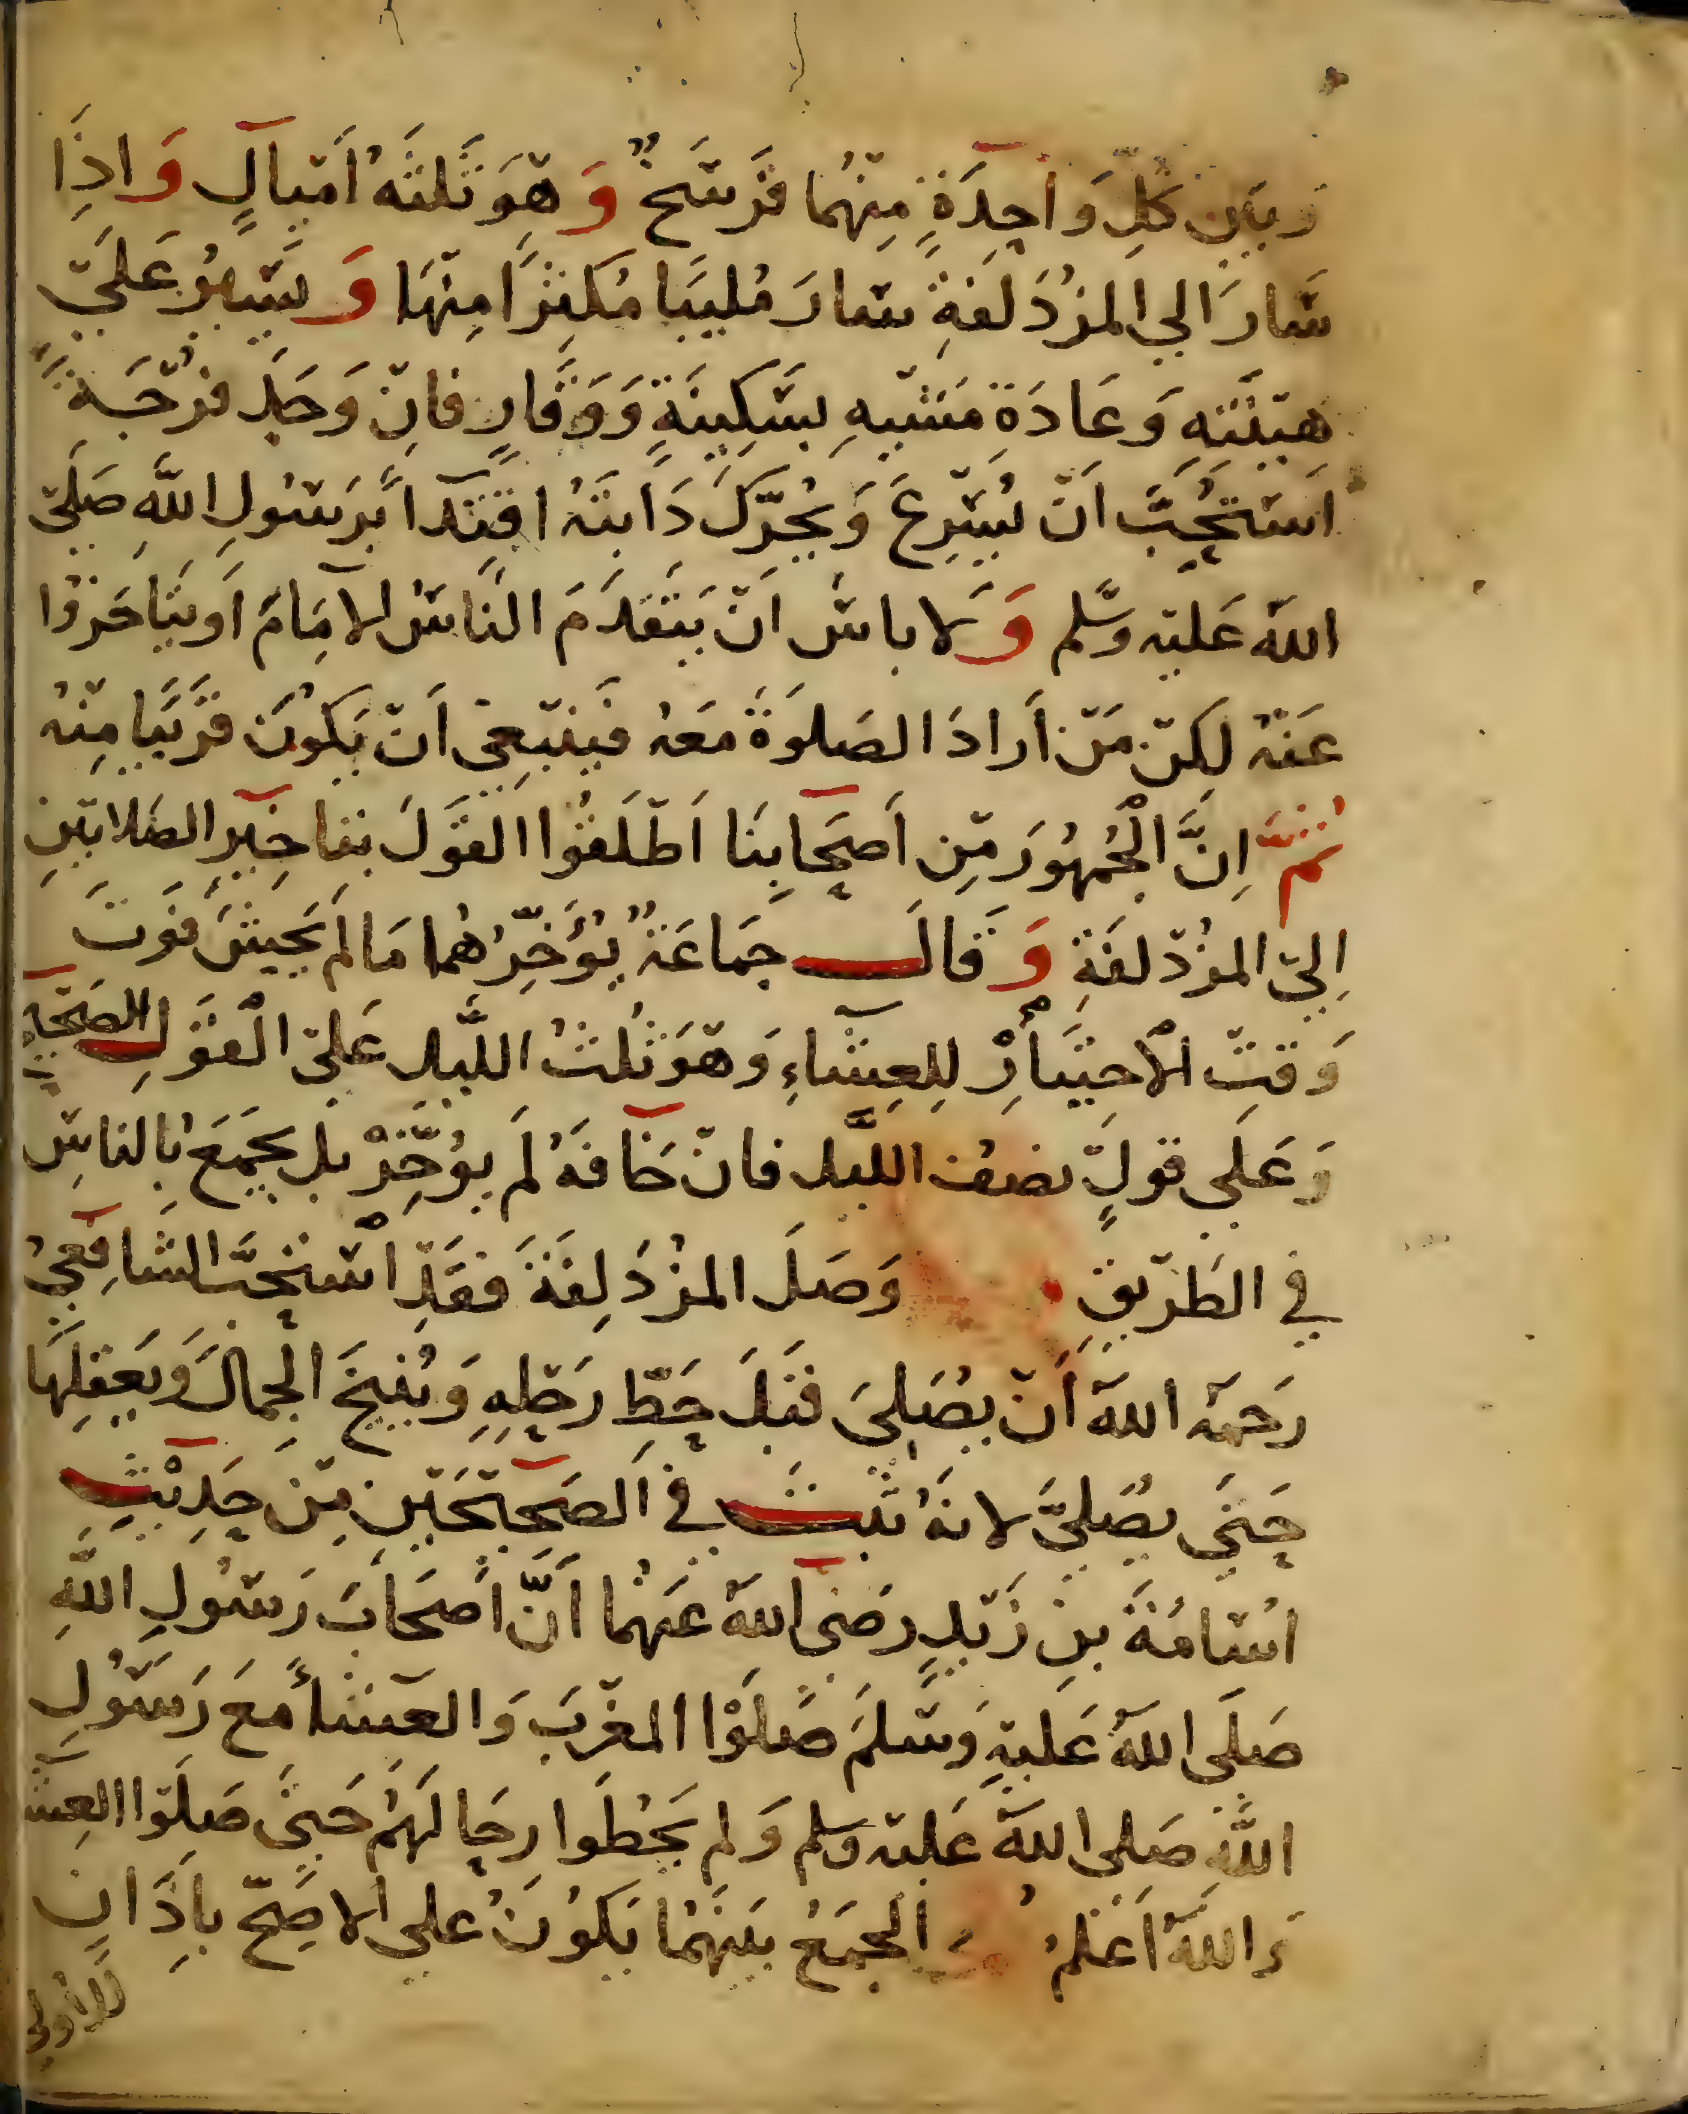 وَبَيْنَ كُلِّ وَاحِدَةٍ مِنْهُمَا فَرْسَخٌ وَهُوَ ثَلَثَةُ أَمْيَالٍ وَاذَا
سَارَ الى المزْدَلفةِ سَارَ مُلَبِيًا مُكثِرًا مِنْهَا وَيَسِيرُ عَلَى
هيْئَتِهِ وَعَادَة مَشْيِهِ بسَكِينَةٍ وَوَقَارٍ فانْ وَجَدَ فرْجَةً
اسْتحُبَّ اَنْ يُسْرِعَ وَيُحرِّكَ دَابتَهُ اقتدآءً برَسُولِ اللَّهِ صَلَى
الله عَليْه وسَّلم وَلا باسَ انْ يَتَقدَمَ الناسُ الامَامَ اَو يَتَاخرُوا
عَنْهُ لكِنْ مَنْ اَرادَ الصَلوَةَ مَعَهُ فينْبَغِى اَنْ يَكُونَ قَرِيبًا مِنْهُ
ثُمَّ اِنَّ الْجُمهُورَ مِنْ اَصحَابِنَا اَطْلَقُوا القَوْلَ بتاخِيرِ الصَلاتيْنِ
اِلىَ المزْدَلفَةِ وَقَالَ جمَاعَةٌ يُؤَخِّرُهما مَا لم يَخْشَ فَوْتَ
وَقتْ الْاختيَارْ لِلعِشَاءِ وَهْوَ ثُلثُ اللَّيل عَلى الْقَوْلِ الصَحيح
وَعَلى قولٍ نصْف اللَّيل فانْ خَافَهُ لَم يؤخِّرْ بل يجمَعُ بالناسِ
في الطَرْيقِ وَصَلَ المزْدَلِفَةَ فقَدِ اسْتحَبَّ الشَافعِىُ
رَحمهُ اللهُ اَنْ يُصَلِىَ قَبْلَ حَطِّ رَحْلِهِ وَيُنيخَ الجمالَ وَيَعْقِلَهَا
حَتىَ يُصَلىَّ لانهُ ثبَتَ في الصَحيْحَيْنِ مِنْ حَدِيْثِ
اُسَامَةَ بنِ زَيْدٍ رَضىَ اللهُ عَنهُما اَنَّ اَصحَابَ رَسُولِ اللَّهِ
صَلَى اللهُ عَليْهِ وَسَلمَ صَلَوْا المغْرِبَ وَالعِشَاءَ مَعَ رَسُولِ
اللَّهِ صَلى اللهُ عَليْه وسلم وَلم يَحُطوا رحَالهُمْ حَتىَ صَلَوْا العِشَا
وَاللهُ اَعْلمُ وَالجمَعُ بَينَهُمَا يَكُونُ عَلى الاصَحّ باذَانٍ
للأولى